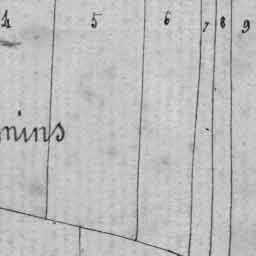 4 5 6 7 8 9
mins